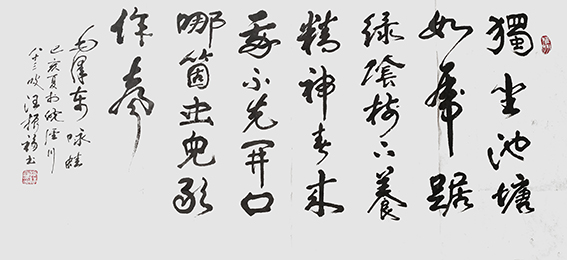 獨坐池塘
如虎踞
綠陰樹下養
精神春來
我不先開口
哪箇虫兒敢
作聲
毛澤東 咏蛙
己亥夏於皖涇川
八十三叟汪振书